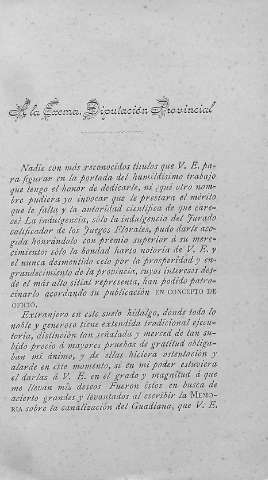 A la Excma. Diputación Provincial
Nadie con más reconocidos títulos que V. E. pa-
ra figurar en la portada del humildísimo trabajo
que tengo el honor de dedicarle, ni ¿qué otro nom-
bre pudiera yo invocar que le prestara el mérito
que le falta y la autoridad científica de que care-
ce? La indulgencia, sólo la indulgencia del Jurado
calificador de los Juegos Florales, pudo darle aco-
gida honrándolo con premio superior á su mere-
cimiento; sólo la bondad harto notoria de V. E. y
el nunca desmentido celo por la prosperidad y en-
grandecimiento de la provincia, cuyos intereses des-
de el más alto sitial representa, han podido patro-
cinarlo acordando su publicación EN CONCEPTO DE
OFICIO.
Extranjero en este suelo hidalgo, donde todo lo
noble y generoso tiene extendida tradicional ejecu-
toria, distinción tan señalada y merced de tan su-
bido precio á mayores pruebas de gratitud obliga-
ban mi ánimo, y de ellas hiciera ostentación y
alarde en este momento, si en mi poder estuviera
el darlas á V. E. en el grado y magnitud á que
me llevan mis deseos. Fueron éstos en busca de
acierto grandes y levantados al escribir la MEMO-
RIA sobre la canalización del Guadiana, que V. E.